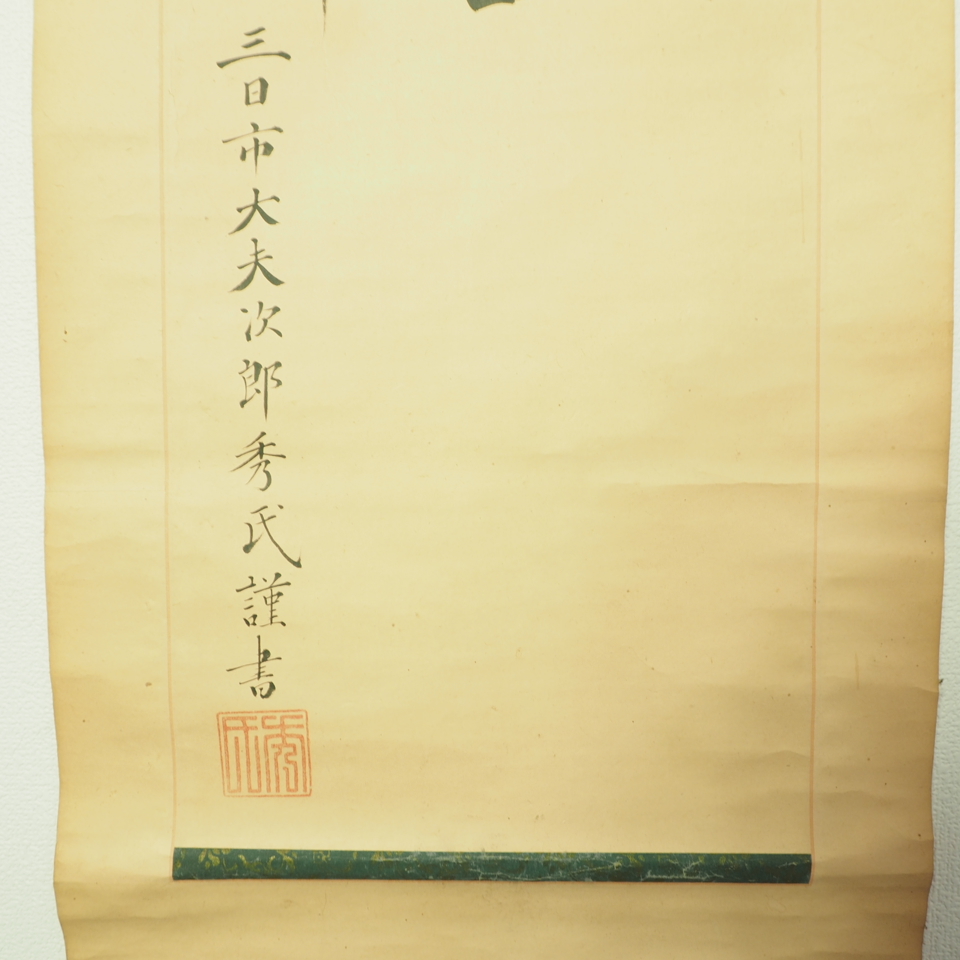 三日市大夫次郎秀氏謹書
秀氏